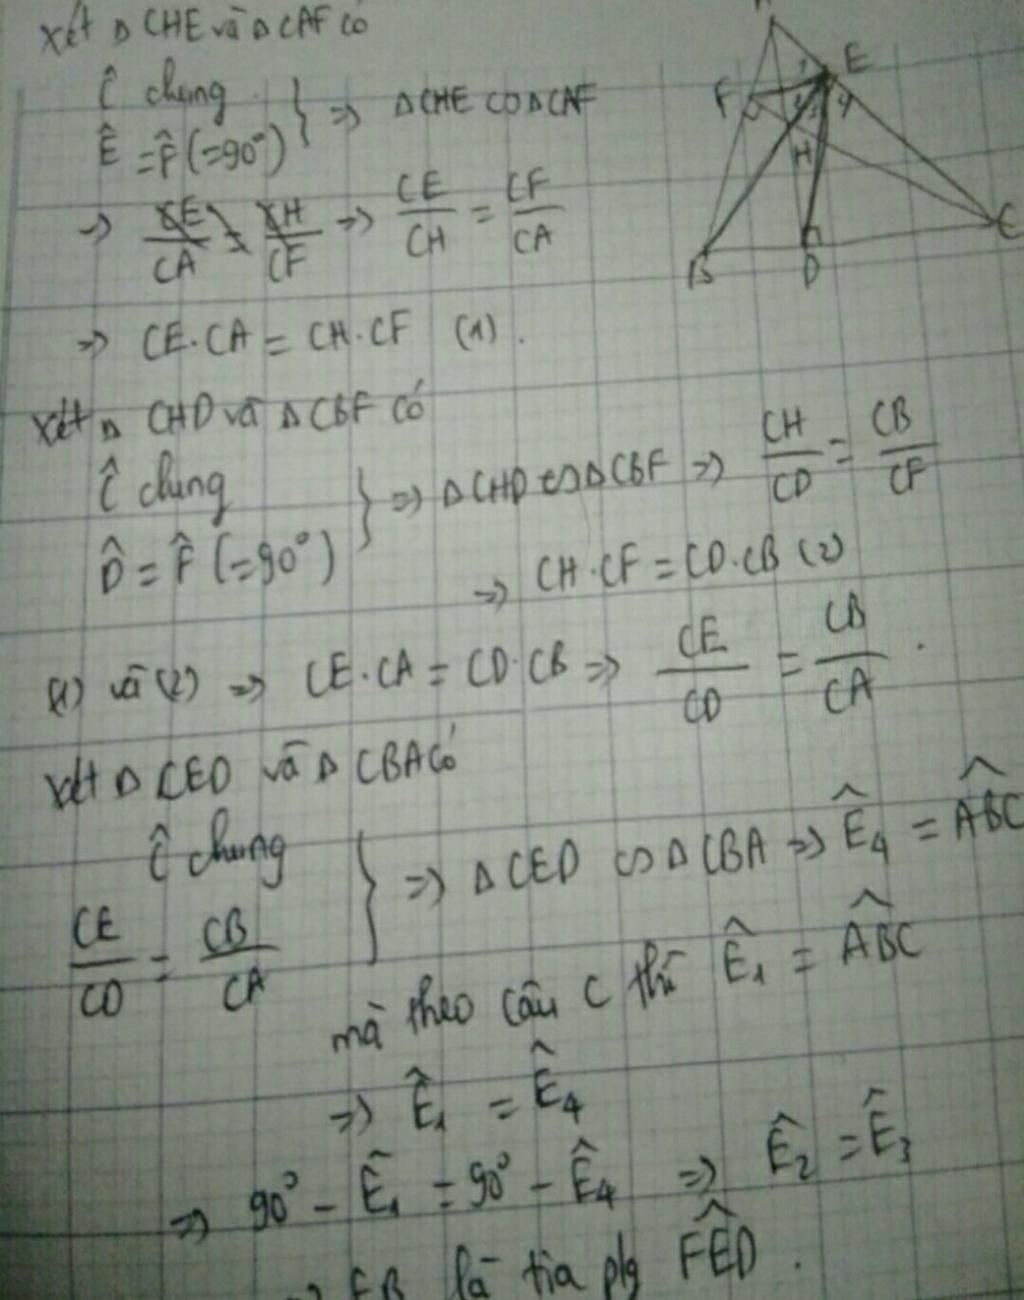 Xét Δ CHE và Δ CAF có
Ĉ chung
Ê = F̂ (=90°)
} => Δ CHE ∽ Δ CAF
=> CE/CH = CF/CA
=> CE.CA = CH.CF (1).
Xét Δ CHD và Δ CBF có
Ĉ chung
D̂ = F̂ (=90°)
} => Δ CHD ∽ Δ CBF => CH/CD = CB/CF
=> CH.CF = CD.CB (2)
(1) và (2) => CE.CA = CD.CB => CE/CD = CB/CA.
Xét Δ CED và Δ CBA có
Ĉ chung
CE/CD = CB/CA
} => Δ CED ∽ Δ CBA => Ê4 = ABĈ
mà theo câu c thì Ê1 = ABĈ
=> Ê1 = Ê4
=> 90° - Ê1 = 90° - Ê4 => Ê2 = Ê3
=> EB là tia plg FÊD.
E
F
1
4
H
B
D
C